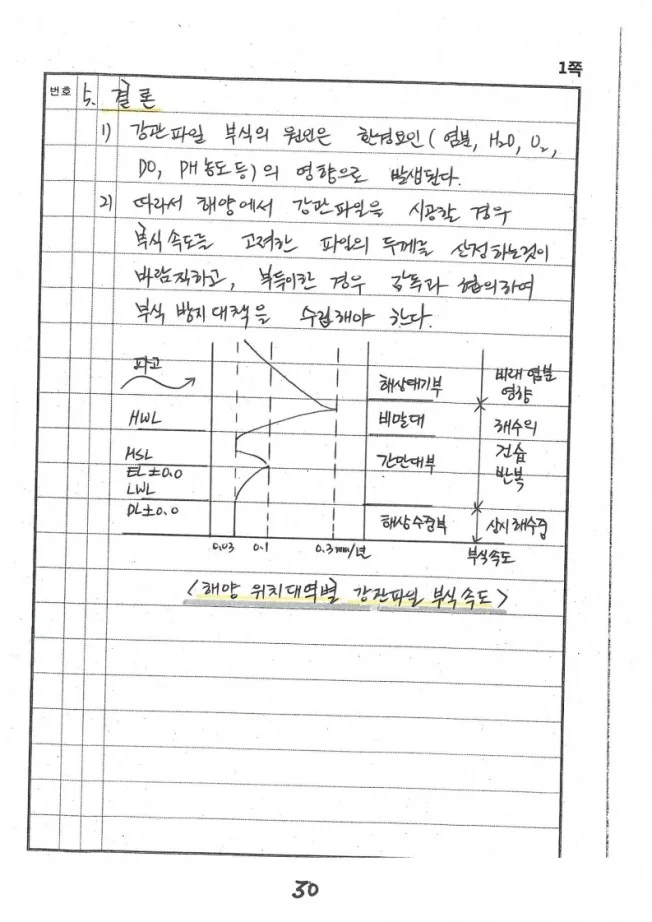 1쪽
번호 5. 결론
1) 강관파일 부식의 원인은 환경요인(염분, H2O, O2,
DO, PH농도 등)의 영향으로 발생된다.
2) 따라서 해양에서 강관파일을 시공할 경우
부식속도를 고려한 파일의 두께를 산정하는것이
바람직하고, 부득이한 경우 감독과 협의하여
부식 방지대책을 수립해야 한다.
파고 해상대기부 비래염분
영향
HWL 비말대 해수의
MSL 간만대부 건습
EL±0.0 반복
LWL
DL±0.0 해상수중부 상시해수중
0.03 0.1 0.3mm/년 부식속도
<해양 위치대역별 강관파일 부식속도>
30